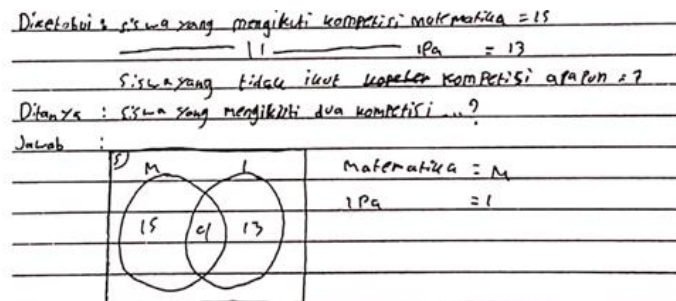 Diketahui : siswa yang mengikuti kompetisi matematika = 15
—— 11 —— IPa = 13
Siswa yang tidak ikut kompetisi apapun = 7
Ditanya : siswa yang mengikuti dua kompetisi ...?
Jawab :
S) M I Matematika = M
IPa = I
15 13